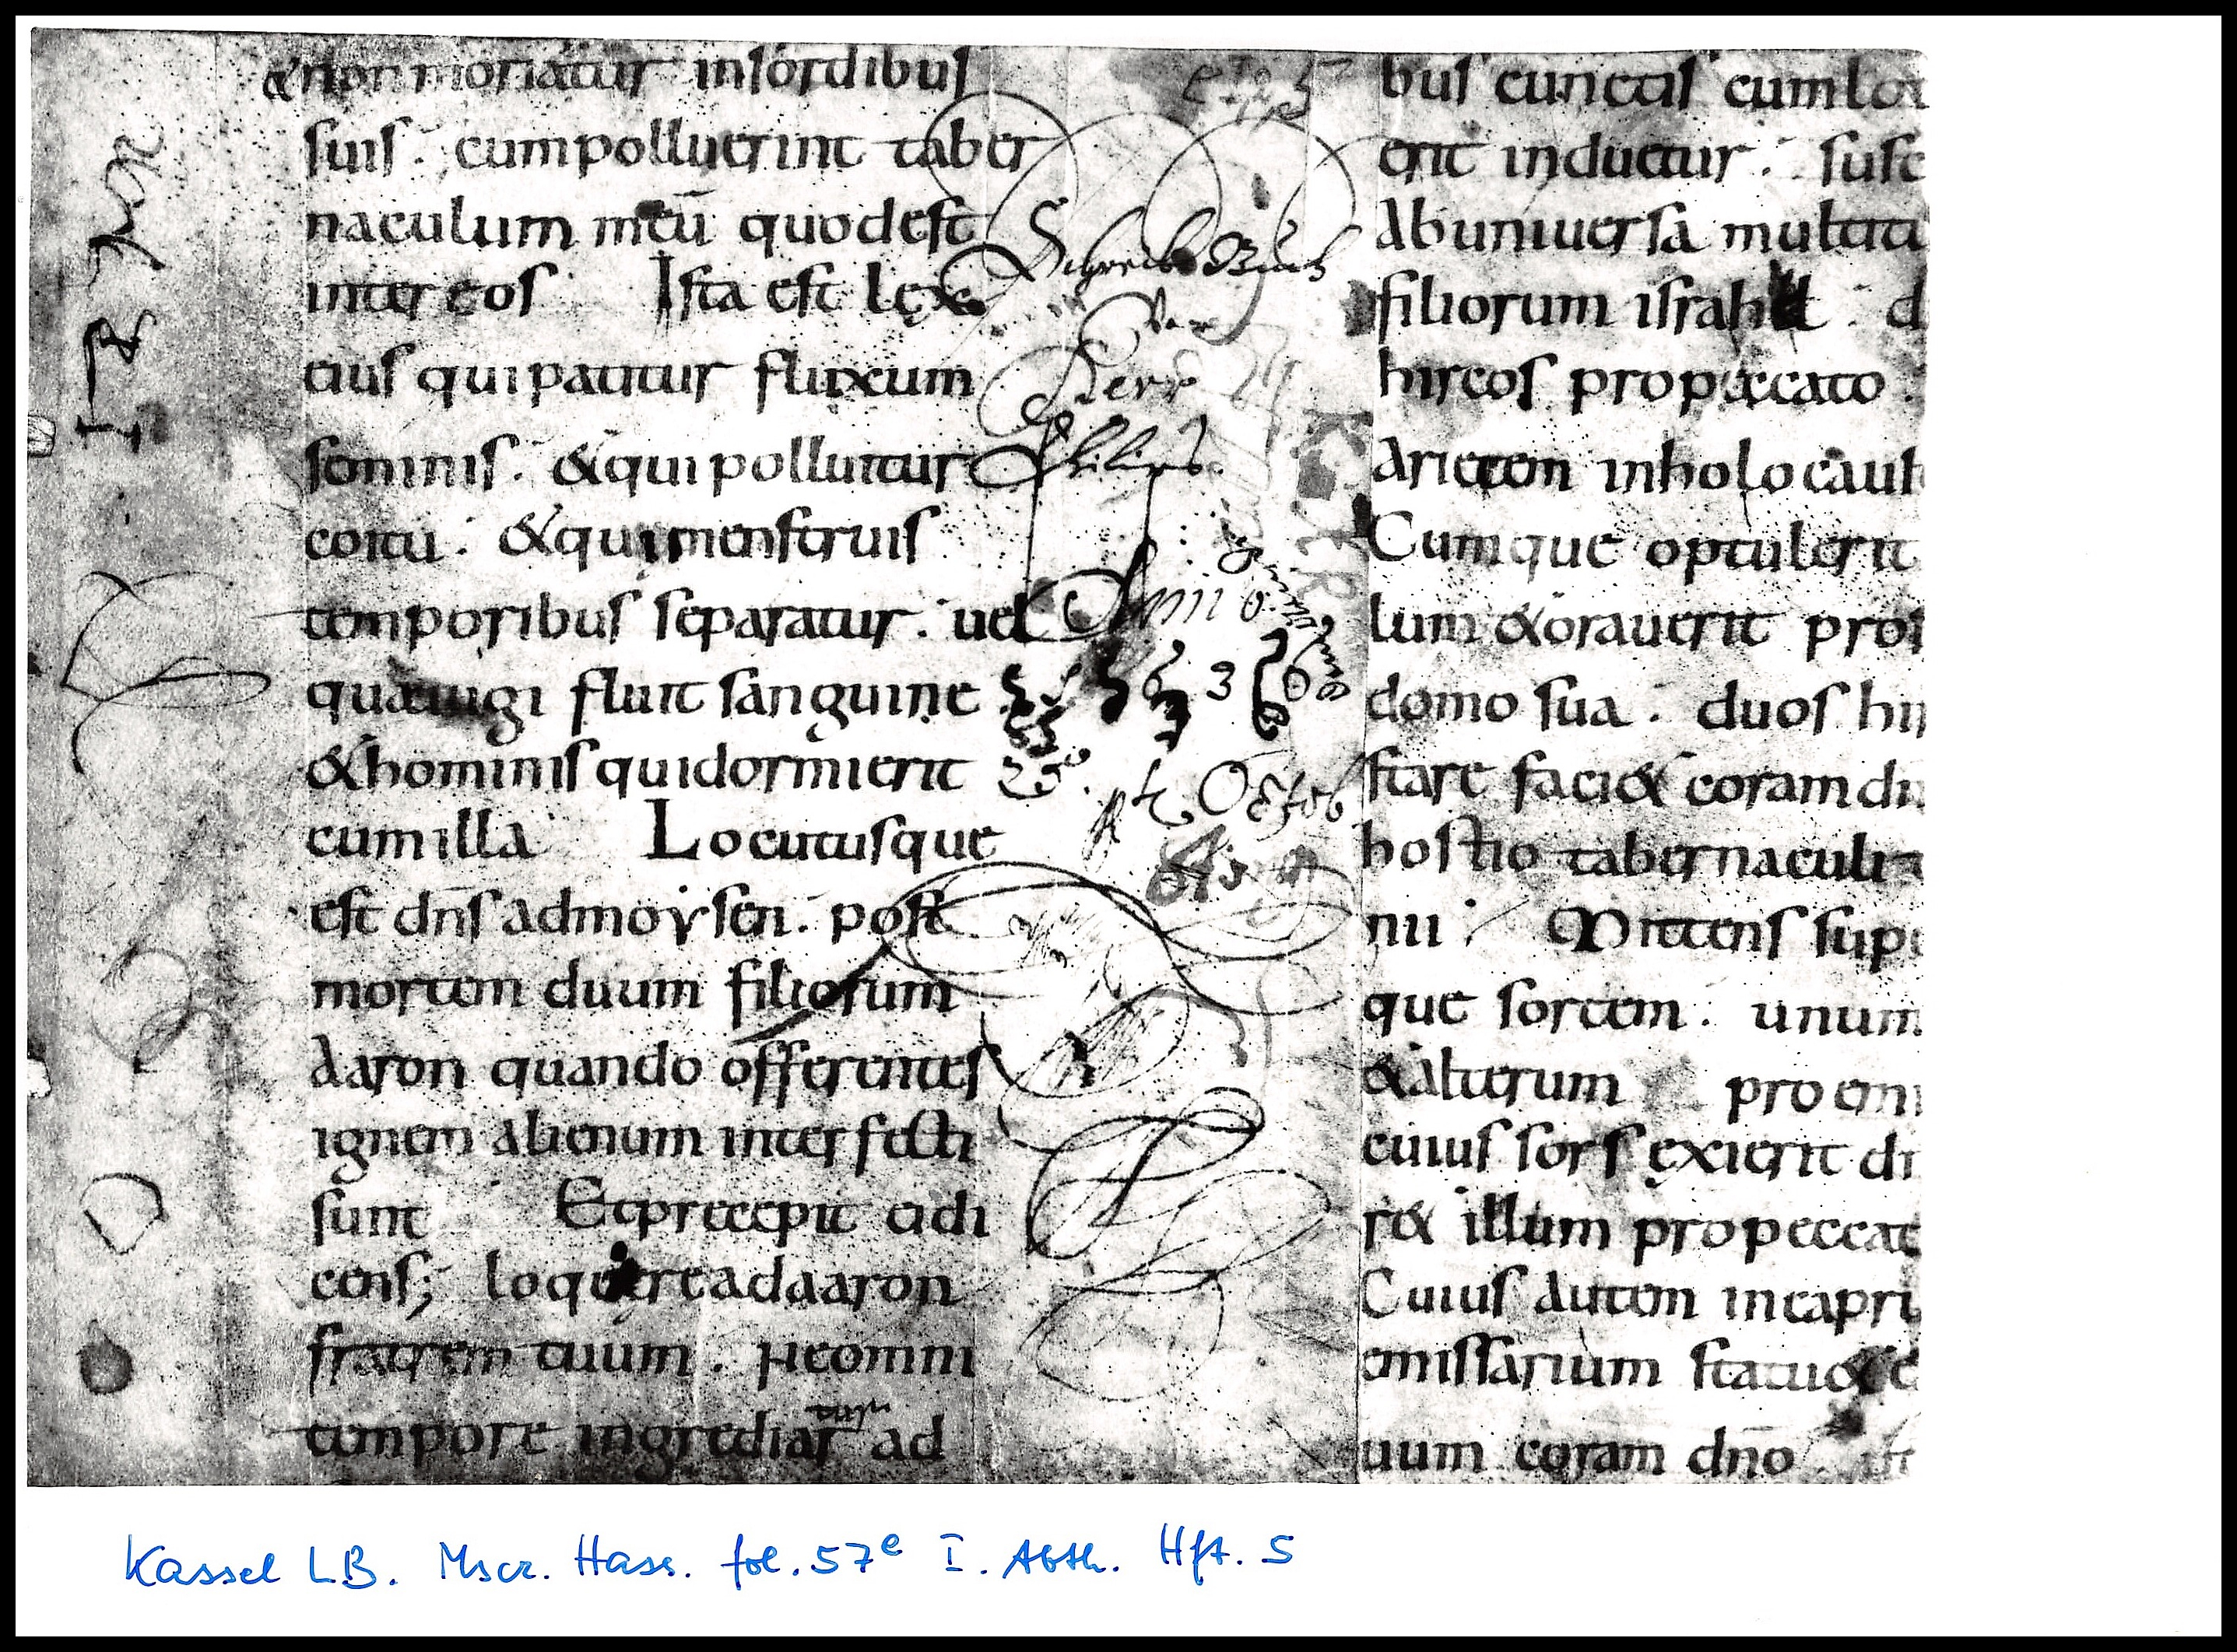 &non moriatur insordibus
suis . cumpolluerint taber
naculum meū quodest
inter eos Ista est lex
eius quipatitur fluxum
seminis . &qui polluitur
coitu . &quimenstruis
temporibus separatur . uel
quaeiugi fluit sanguine
&hominis quidormierit
cumilla Locutusque
est dn̄s admoysen . post
mortem duum filiorum
Aaron quando offerentes
ignem alienum interfecti
sunt Etprecepit eidi
cens; loquere adaaron
fratrem tuum . Neomni
tempore ingrediatur ad
Schreib Buch
Herr
Philips
Anno
25
Octob
bus cunctis cumlou
erit induetur . susc
Abuniuersa multitu
filiorum israhel . d
hircos propeccato .
Arietem inholocaust
Cumque optulerit
lum &orauerit pro
domo sua . duos hir
stare faci& coramdn
hostio tabernaculi
nii Mittens sup
que sortem . unum
&alterum proemi
cuius sors exierit dn
r& illum propeccat
Cuius autem incapru
emissarium statu&e
uum coram dn̄o . ut
Kassel LB. Mscr. Hass. fol. 57e I. Abth. Hft. 5